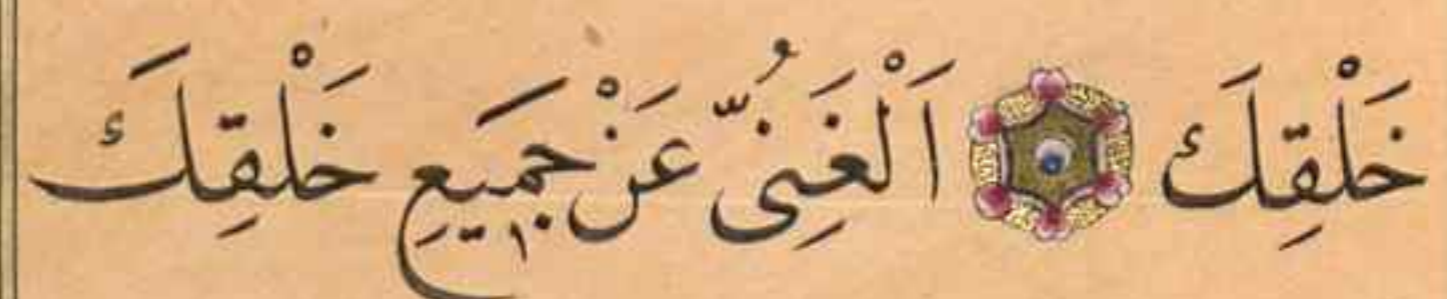 خَلْقِكَ اَلْغَنِىُّ عَنْ جَمٖيعِ خَلْقِكَ